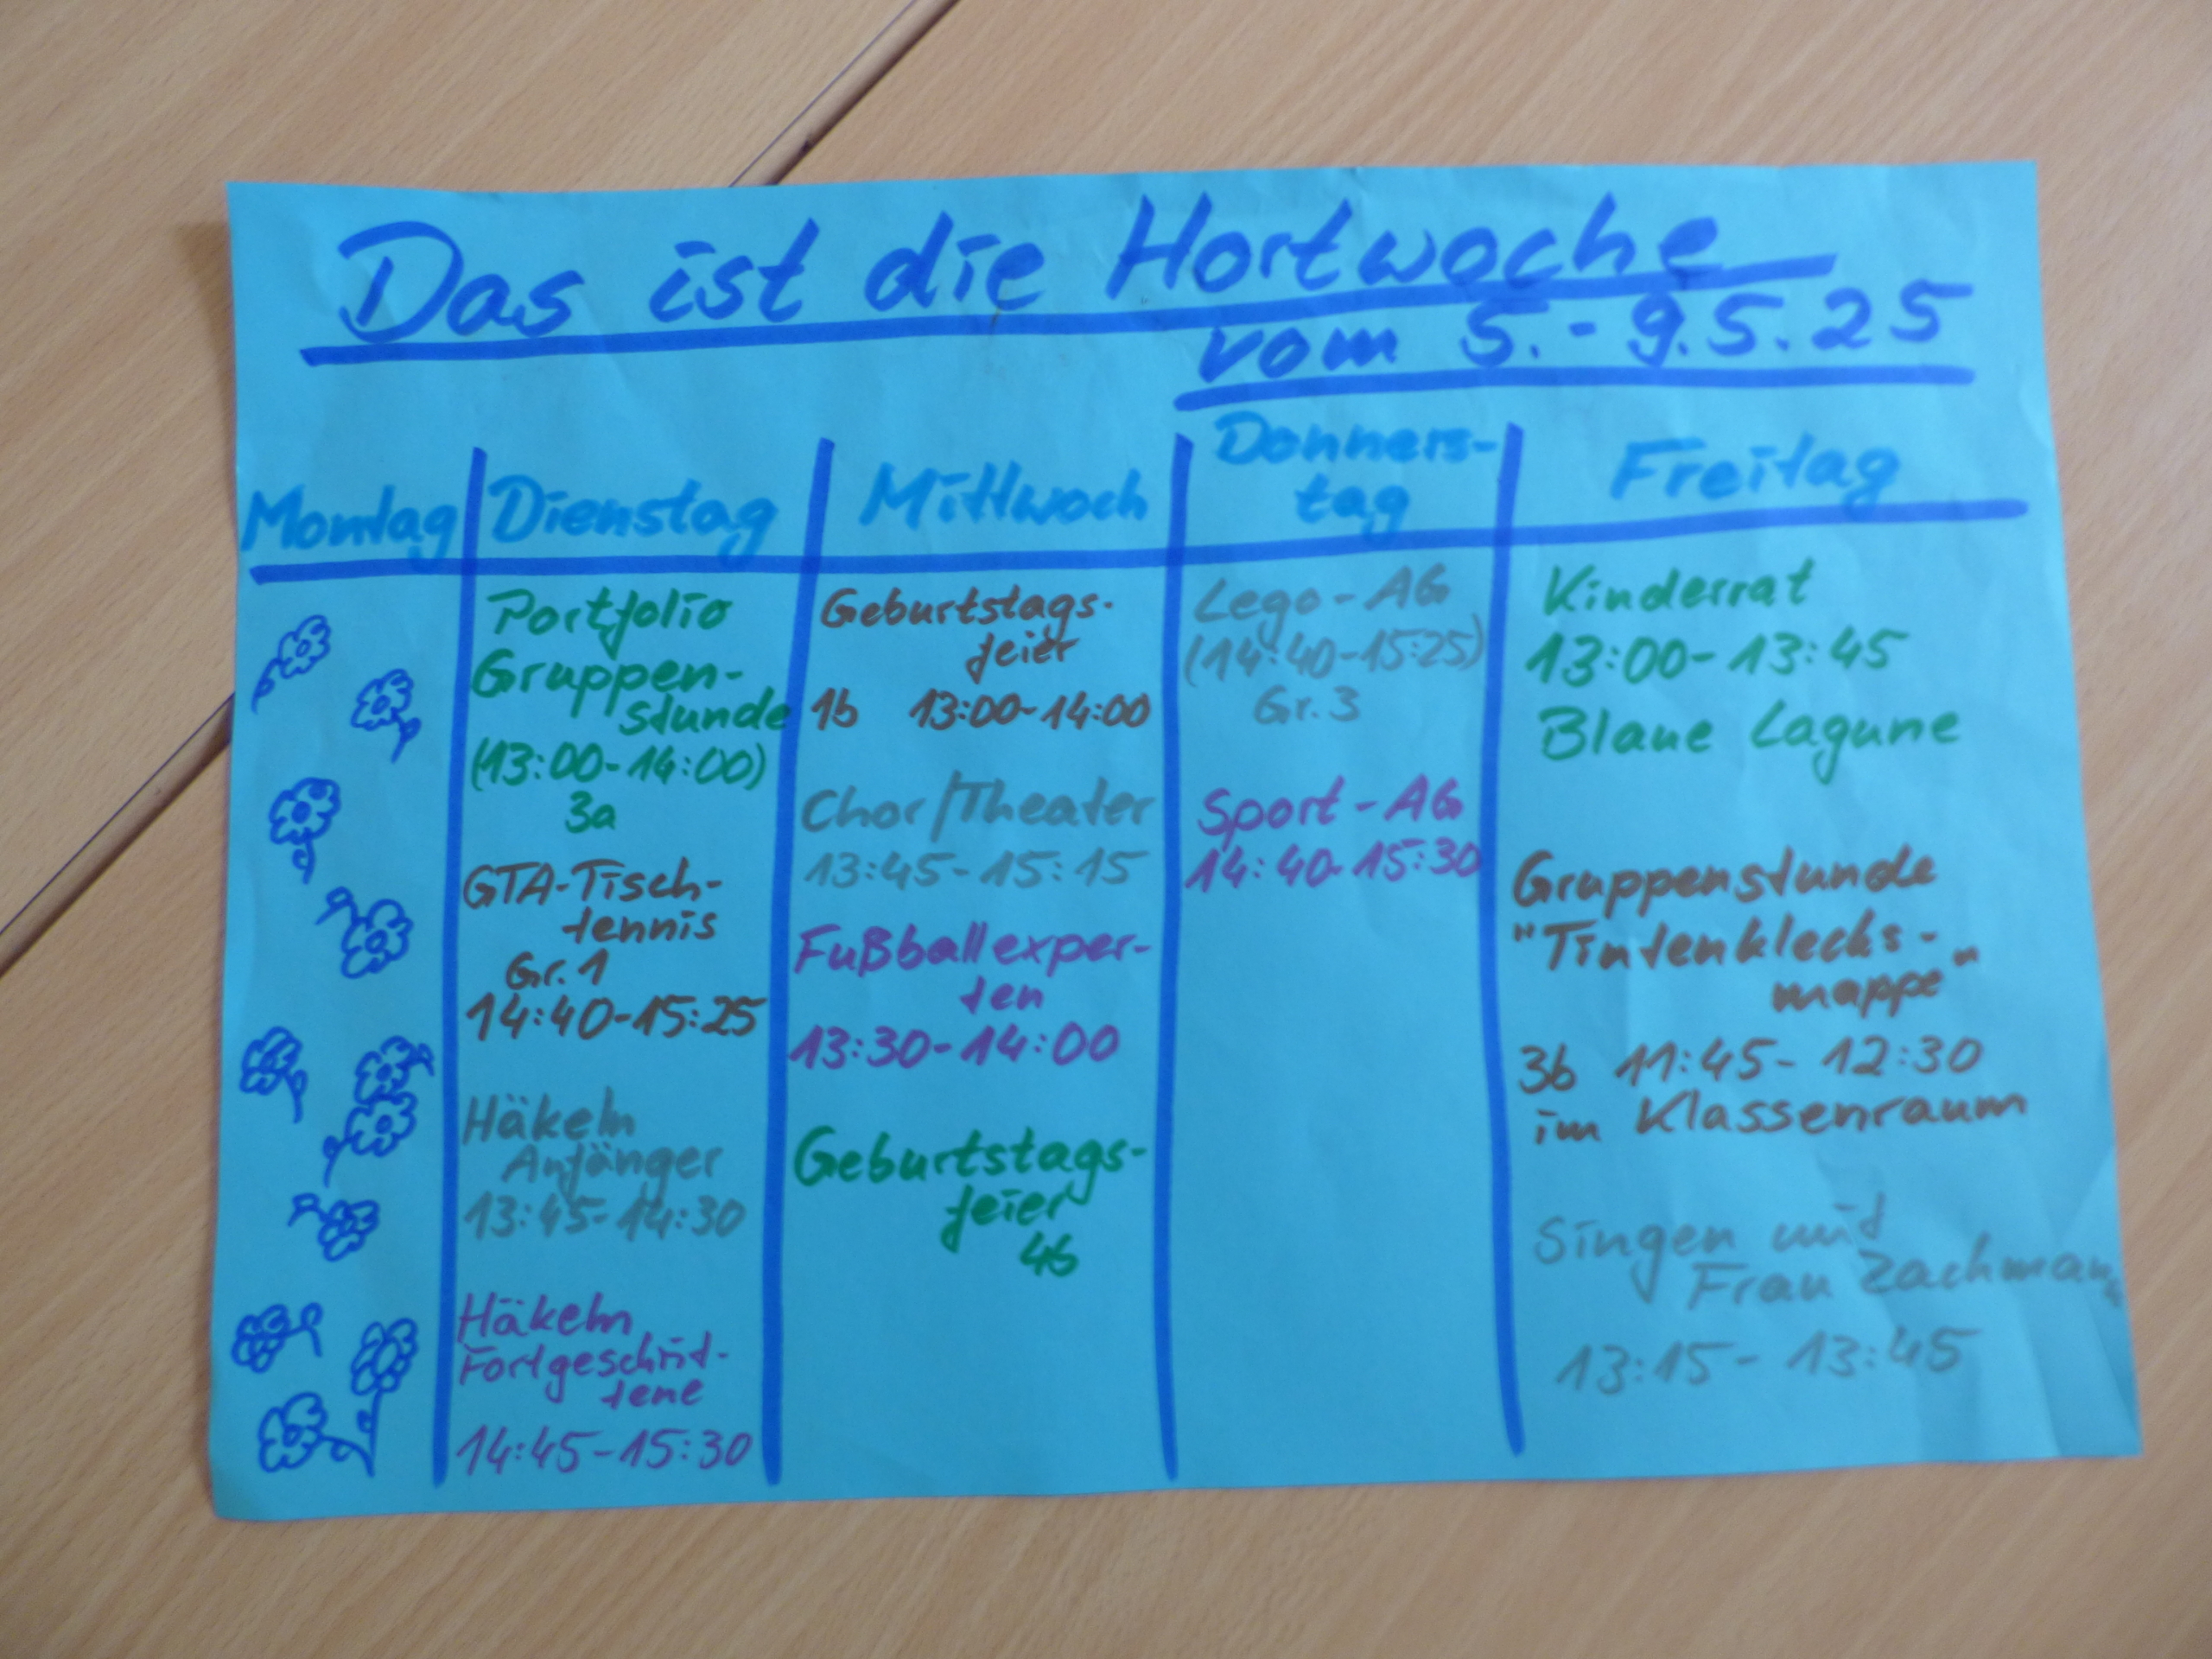 Das ist die Hortwoche
vom 5.-9.5.25
Montag
Dienstag
Portfolio
Gruppen-
stunde
(13:00-14:00)
3a
GTA-Tisch-
tennis
Gr. 1
14:40-15:25
Häkeln
Anfänger
13:45-14:30
Häkeln
Fortgeschrit-
tene
14:45-15:30
Mittwoch
Geburtstags-
feier
1b 13:00-14:00
Chor/Theater
13:45-15:15
Fußballexper-
ten
13:30-14:00
Geburtstags-
feier
4b
Donners-
tag
Lego-AG
(14:40-15:25)
Gr. 3
Sport-AG
14:40-15:30
Freitag
Kinderrat
13:00-13:45
Blaue Lagune
Gruppenstunde
"Tintenklecks-
mappe"
3b 11:45-12:30
im Klassenraum
Singen mit
Frau Zachmann
13:15-13:45